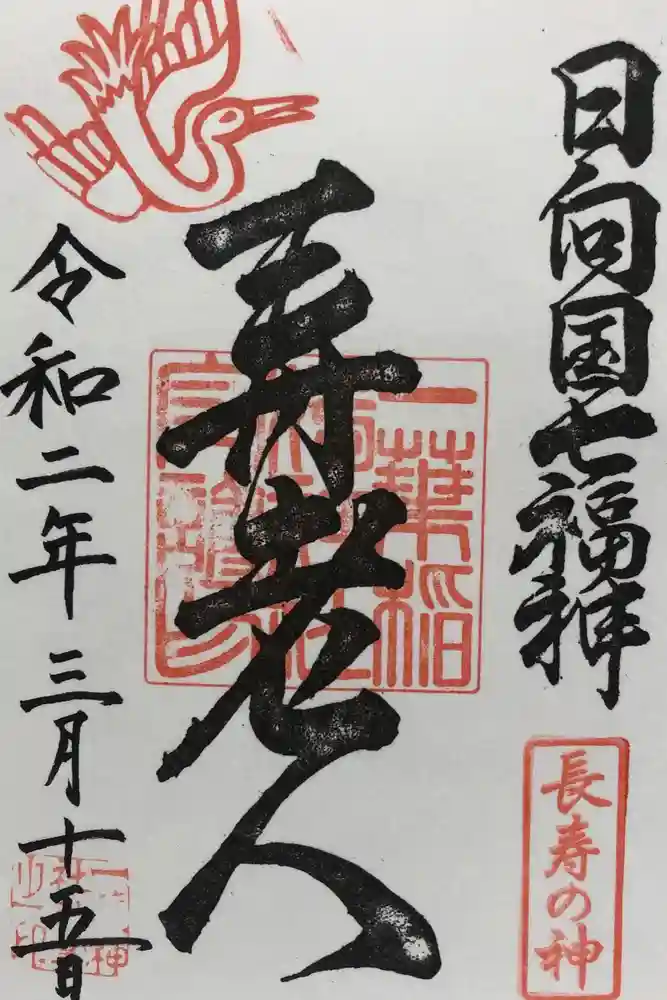 日向国七福神
長寿の神
寿老人
一葉稲
令和二年三月十五日